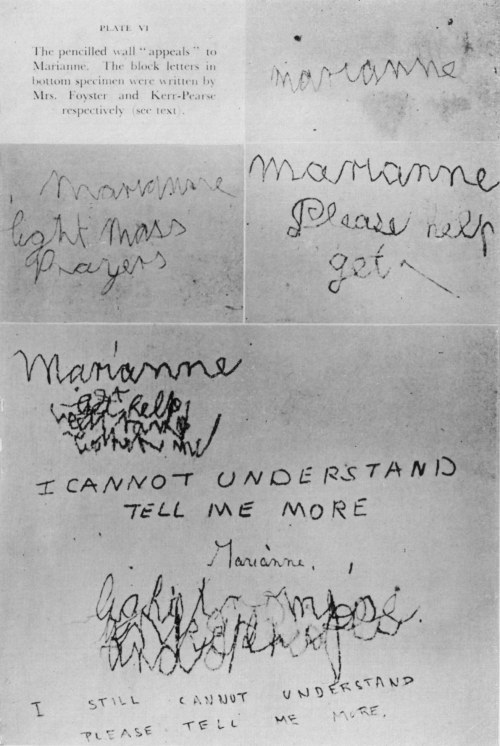 PLATE VI
The pencilled wall "appeals" to
Marianne. The block letters in
bottom specimen were written by
Mrs. Foyster and Kerr-Pearse
respectively (see text).
marianne
Marianne
light mass
Prayers
Marianne
Please help
get
Marianne
get help
I CANNOT UNDERSTAND
TELL ME MORE
Marianne.
I STILL CANNOT UNDERSTAND
PLEASE TELL ME MORE.